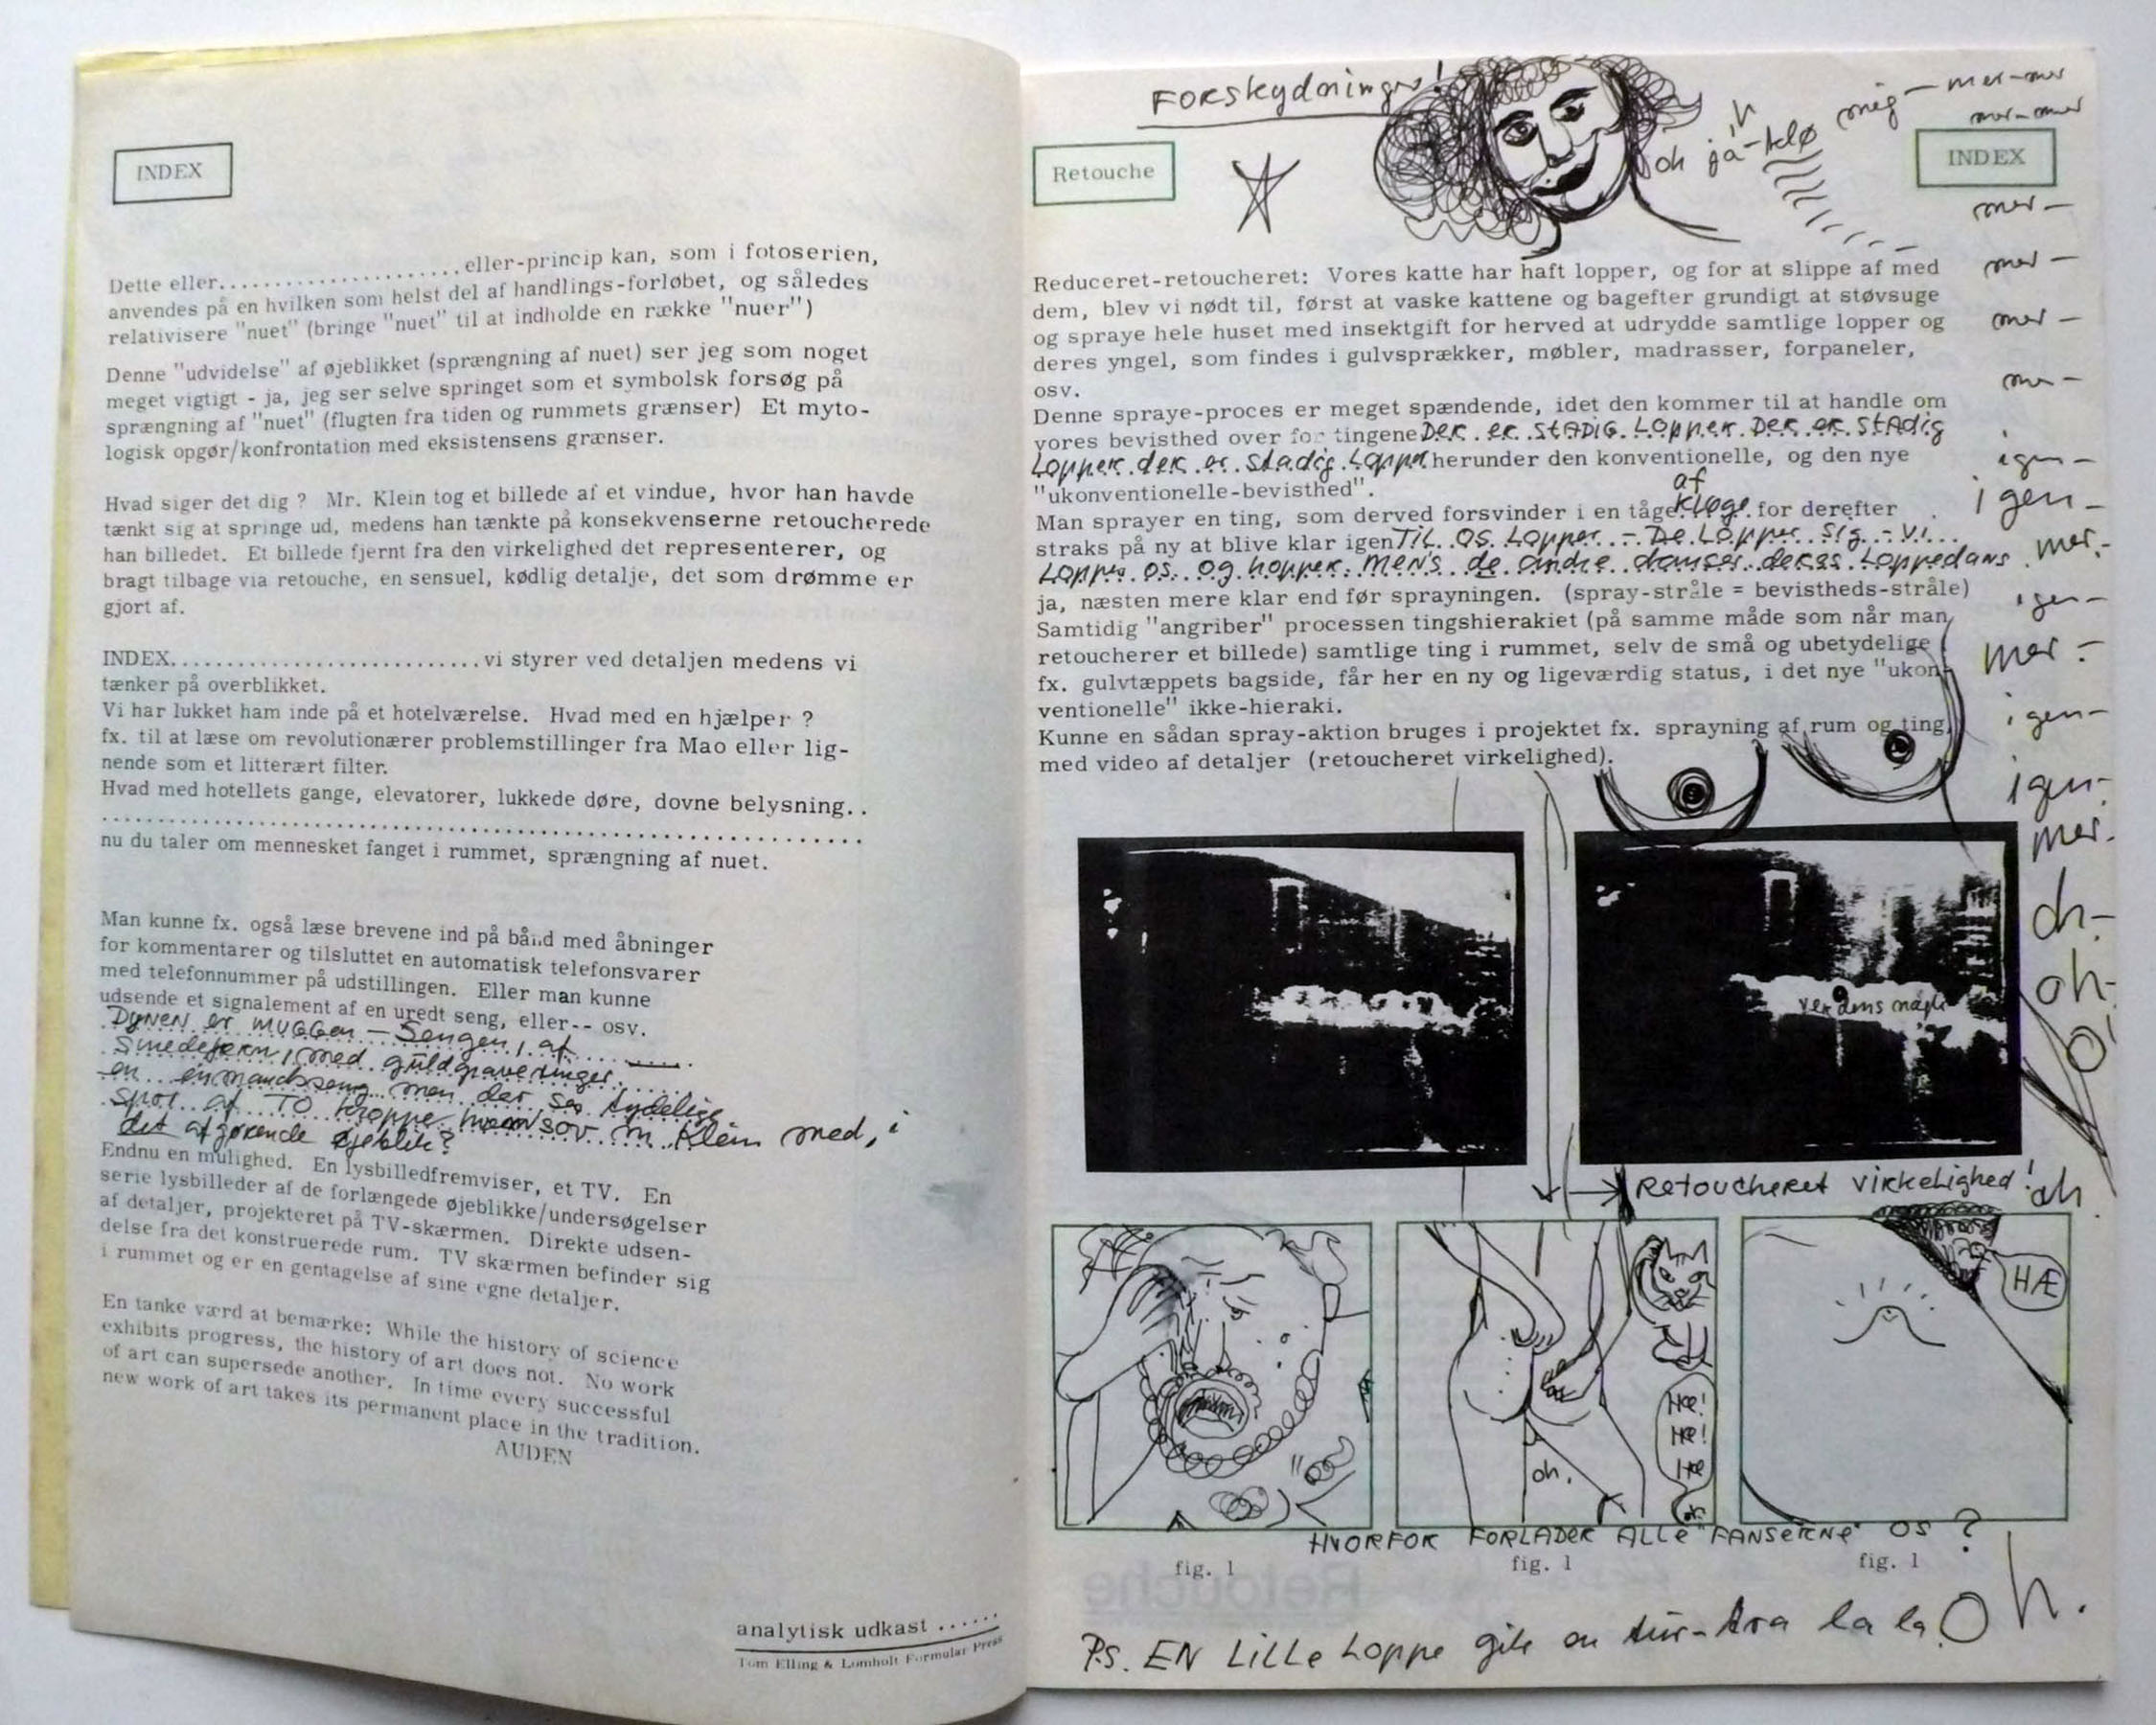 INDEX
Dette eller......................eller-princip kan, som i fotoserien,
anvendes på en hvilken som helst del af handlings-forløbet, og således
relativisere "nuet" (bringe "nuet" til at indholde en række "nuer")
Denne "udvidelse" af øjeblikket (sprængning af nuet) ser jeg som noget
meget vigtigt - ja, jeg ser selve springet som et symbolsk forsøg på
sprængning af "nuet" (flugten fra tiden og rummets grænser) Et myto-
logisk opgør/konfrontation med eksistensens grænser.
Hvad siger det dig ? Mr. Klein tog et billede af et vindue, hvor han havde
tænkt sig at springe ud, medens han tænkte på konsekvenserne retoucherede
han billedet. Et billede fjernt fra den virkelighed det representerer, og
bragt tilbage via retouche, en sensuel, kødlig detalje, det som drømme er
gjort af.
INDEX............................vi styrer ved detaljen medens vi
tænker på overblikket.
Vi har lukket ham inde på et hotelværelse. Hvad med en hjælper ?
fx. til at læse om revolutionærer problemstillinger fra Mao eller lig-
nende som et litterært filter.
Hvad med hotellets gange, elevatorer, lukkede døre, dovne belysning..
......................................................................
nu du taler om mennesket fanget i rummet, sprængning af nuet.
Man kunne fx. også læse brevene ind på bånd med åbninger
for kommentarer og tilsluttet en automatisk telefonsvarer
med telefonnummer på udstillingen. Eller man kunne
udsende et signalement af en uredt seng, eller-- osv.
Dynen er muggen - Sengen, af
Smedejern, med guldgraveringer.
en enmandsseng men der ses tydelige
spor af TO kroppe, hvem sov m. Klein med, i
det afgørende øjeblik?
Endnu en mulighed. En lysbilledfremviser, et TV. En
serie lysbilleder af de forlængede øjeblikke/undersøgelser
af detaljer, projekteret på TV-skærmen. Direkte udsen-
delse fra det konstruerede rum. TV skærmen befinder sig
i rummet og er en gentagelse af sine egne detaljer.
En tanke værd at bemærke: While the history of science
exhibits progress, the history of art does not. No work
of art can supersede another. In time every successful
new work of art takes its permanent place in the tradition.
AUDEN
analytisk udkast ......
Tom Elling & Lomholt Formular Press
FORSkydninger!
oh ja - klø mig - mer-mer
mer-mer
Retouche
INDEX
Reduceret-retoucheret: Vores katte har haft lopper, og for at slippe af med
dem, blev vi nødt til, først at vaske kattene og bagefter grundigt at støvsuge
og spraye hele huset med insektgift for herved at udrydde samtlige lopper og
deres yngel, som findes i gulvsprækker, møbler, madrasser, forpaneler,
osv.
Denne spraye-proces er meget spændende, idet den kommer til at handle om
vores bevisthed over for tingene Der er stadig Lopper. Der er stadig
Lopper. der er stadig Lopper herunder den konventionelle, og den nye
"ukonventionelle-bevisthed".
af
Man sprayer en ting, som derved forsvinder i en tåge. Kløge. for derefter
straks på ny at blive klar igen TIL OS Lopper - De Lopper sig - vi
Loppes os og hopper. mens de andre danser deres Loppedans
ja, næsten mere klar end før sprayningen. (spray-stråle = bevistheds-stråle)
Samtidig "angriber" processen tingshierakiet (på samme måde som når man
retoucherer et billede) samtlige ting i rummet, selv de små og ubetydelige
fx. gulvtæppets bagside, får her en ny og ligeværdig status, i det nye "ukon-
ventionelle" ikke-hieraki.
Kunne en sådan spray-aktion bruges i projektet fx. sprayning af rum og ting
med video af detaljer (retoucheret virkelighed).
mer -
mer -
mer -
mer -
igen -
igen -
mer. -
igen -
mer -
igen -
igen -
mer.
oh -
oh -
Oh
verdens navle
Retoucheret virkelighed! oh
HÆ
Hæ!
Hæ!
Hæ
oh.
HVORFOR FORLADER ALLE "FANSERNE" OS ?
fig. 1
fig. 1
fig. 1
P.S. EN LILLE Loppe gik en tur - tra la la Oh.